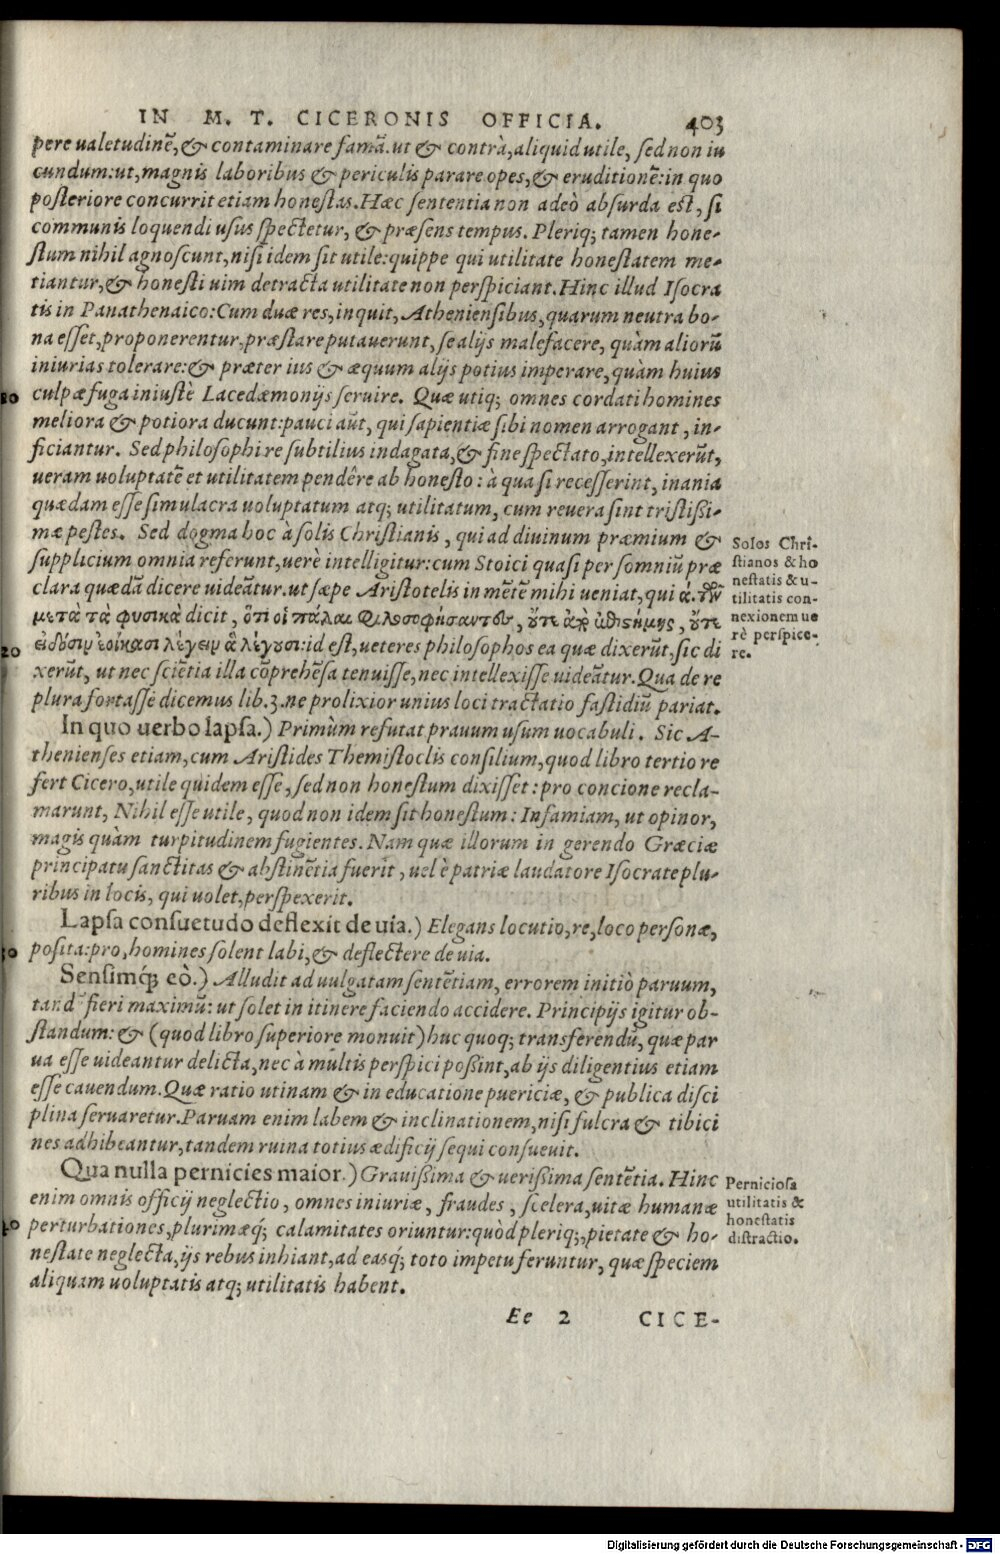 IN M. T. CICERONIS OFFICIA. 403
pere ualetudinẽ, & contaminare famã. ut & contrà, aliquid utile, sed non iu
cundum: ut, magnis laboribus & periculis parare opes, & eruditionẽ: in quo
posteriore concurrit etiam honestas. Hæc sententia non adeò absurda est, si
communis loquendi usus spectetur, & præsens tempus. Pleriq; tamen hone-
stum nihil agnoscunt, nisi idem sit utile: quippe qui utilitate honestatem me-
tiantur, & honesti uim detracta utilitate non perspiciant. Hinc illud Isocra
tis in Panathenaico: Cum duæ res, inquit, Atheniensibus, quarum neutra bo-
na esset, proponerentur, præstare putauerunt, se alijs malefacere, quàm aliorũ
iniurias tolerare: & præter ius & æquum alijs potius imperare, quàm huius
culpæ fuga iniustè Lacedæmonijs seruire. Quæ utiq; omnes cordati homines
meliora & potiora ducunt: pauci aũt, qui sapientiæ sibi nomen arrogant, in-
ficiantur. Sed philosophi re subtilius indagata, & fine spectato, intellexerũt,
ueram uoluptatẽ et utilitatem pendêre ab honesto: à qua si recesserint, inania
quædam esse simulacra uoluptatum atq; utilitatum, cum reuera sint tristißi-
mæ pestes. Sed dogma hoc à solis Christianis, qui ad diuinum præmium &
supplicium omnia referunt, uerè intelligitur: cum Stoici quasi per somniũ præ
clara quædã dicere uideãtur. ut sæpe Aristotelis in mẽtẽ mihi ueniat, qui ά. τῶν
μετὰ τὰ φυσικὰ dicit, ὅτι οἱ πάλαι φιλοσοφήσαντες, οὔτε ἀπ' ἐπιστήμης, οὔτε
εἰδόσιν ἐοίκασι λέγειν ἃ λέγουσι: id est, ueteres philosophos ea quæ dixerũt, sic di
xerũt, ut nec sciẽtia illa cõprehẽsa tenuisse, nec intellexisse uideãtur. Qua de re
plura fortasse dicemus lib. 3. ne prolixior unius loci tractatio fastidiũ pariat.
In quo uerbo lapsa.) Primùm refutat prauum usum uocabuli. Sic A-
thenienses etiam, cum Aristides Themistoclis consilium, quod libro tertio re
fert Cicero, utile quidem esse, sed non honestum dixisset: pro concione recla-
marunt, Nihil esse utile, quod non idem sit honestum: Infamiam, ut opinor,
magis quàm turpitudinem fugientes. Nam quæ illorum in gerendo Græciæ
principatu sanctitas & abstinẽtia fuerit, uel è patriæ laudatore Isocrate plu-
ribus in locis, qui uolet, perspexerit.
Lapsa consuetudo deflexit de uia.) Elegans locutio, re, loco personæ,
posita: pro, homines solent labi, & deflectere de uia.
Sensimq́; eò.) Alludit ad uulgatam sentẽtiam, errorem initiò paruum,
tandẽ fieri maximũ: ut solet in itinere faciendo accidere. Principijs igitur ob-
standum: & (quod libro superiore monuit) huc quoq; transferendũ, quæ par
ua esse uideantur delicta, nec à multis perspici poßint, ab ijs diligentius etiam
esse cauendum. Quæ ratio utinam & in educatione puericiæ, & publica disci
plina seruaretur. Paruam enim labem & inclinationem, nisi fulcra & tibici
nes adhibeantur, tandem ruina totius ædificij sequi consueuit.
Qua nulla pernicies maior.) Grauißima & uerißima sentẽtia. Hinc
enim omnis officij neglectio, omnes iniuriæ, fraudes, scelera, uitæ humanæ
perturbationes, plurimæq́; calamitates oriuntur: quòd pleriq;, pietate & ho-
nestate neglecta, ijs rebus inhiant, ad easq́; toto impetu feruntur, quæ speciem
aliquam uoluptatis atq; utilitatis habent.
Ee 2 CICE-
20
Solos Chri-
stianos & ho
nestatis & u-
tilitatis con-
nexionem ue
rè perspice-
re.
Perniciosa
utilitatis &
honestatis
distractio.
Digitalisierung gefördert durch die Deutsche Forschungsgemeinschaft - DFG